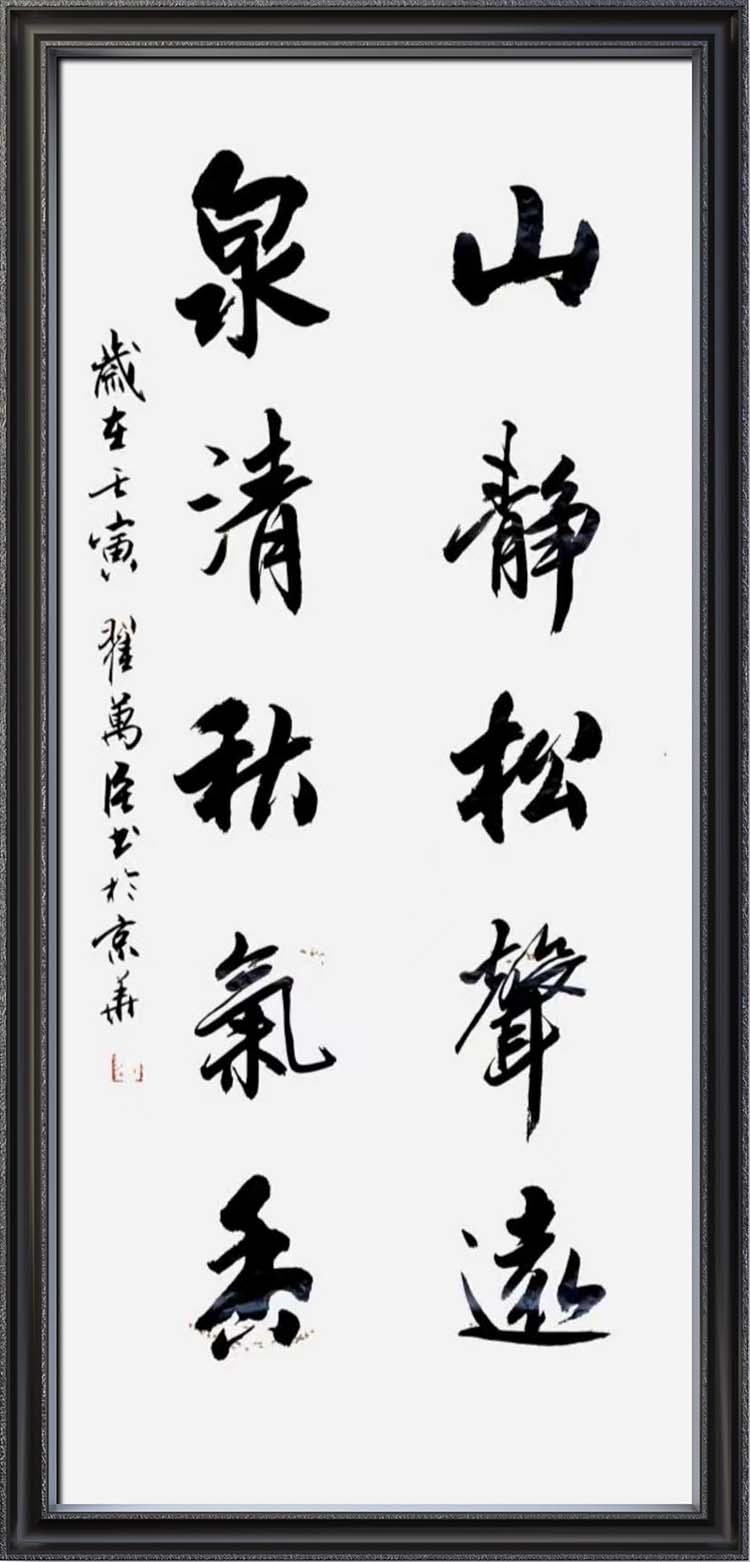 山靜松聲遠
泉清秋氣香
歲在壬寅 翟萬臣書於京華